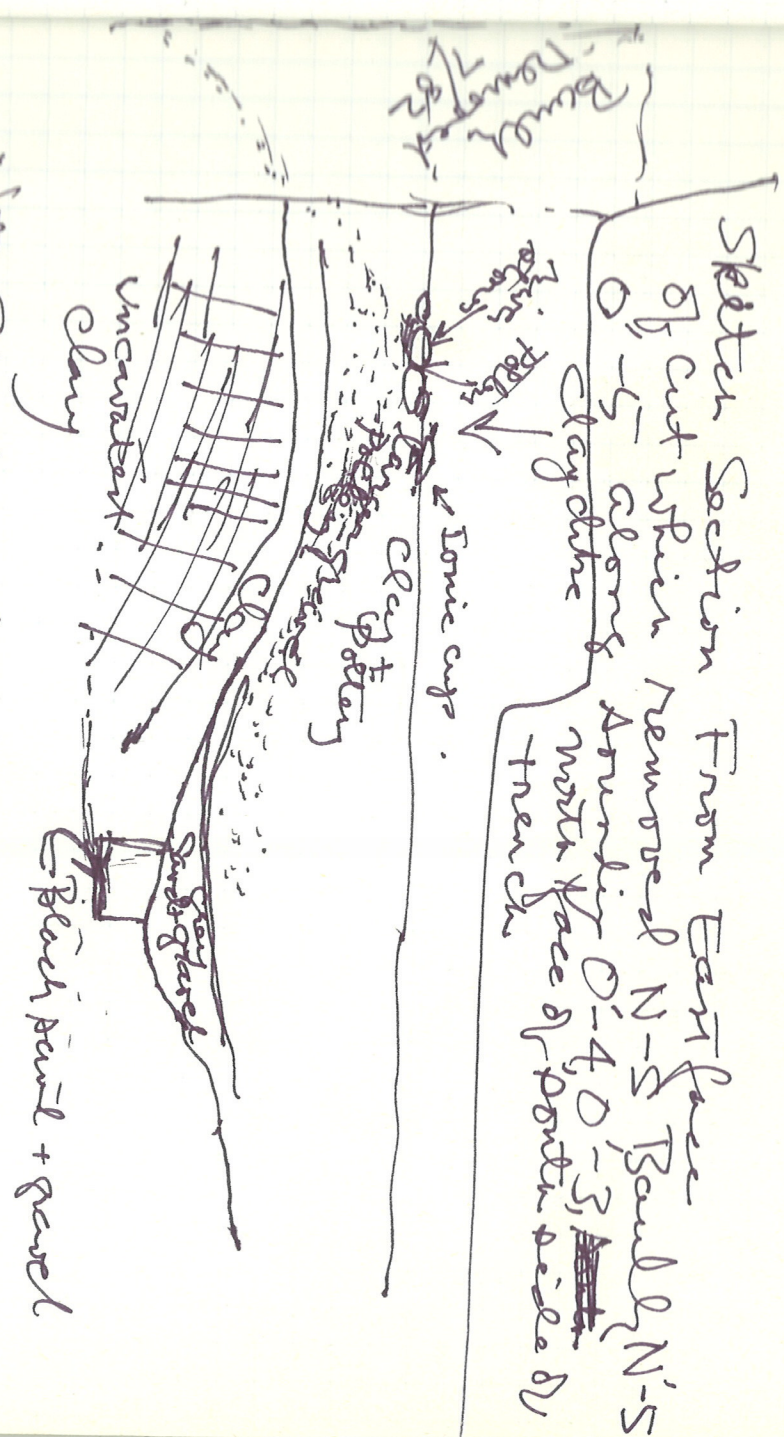 Sketch Section From East face
of cut which removed N-S Baulk, N'-5
O'-5 along sounding O'-4, O'-3,
north face of south side of
trench
Baulk
Removed
clay dike
← Ionic cup.
clay +
pottery
gravel
Clay
unexcavated
clay
grey
sand + gravel
Black sand + gravel